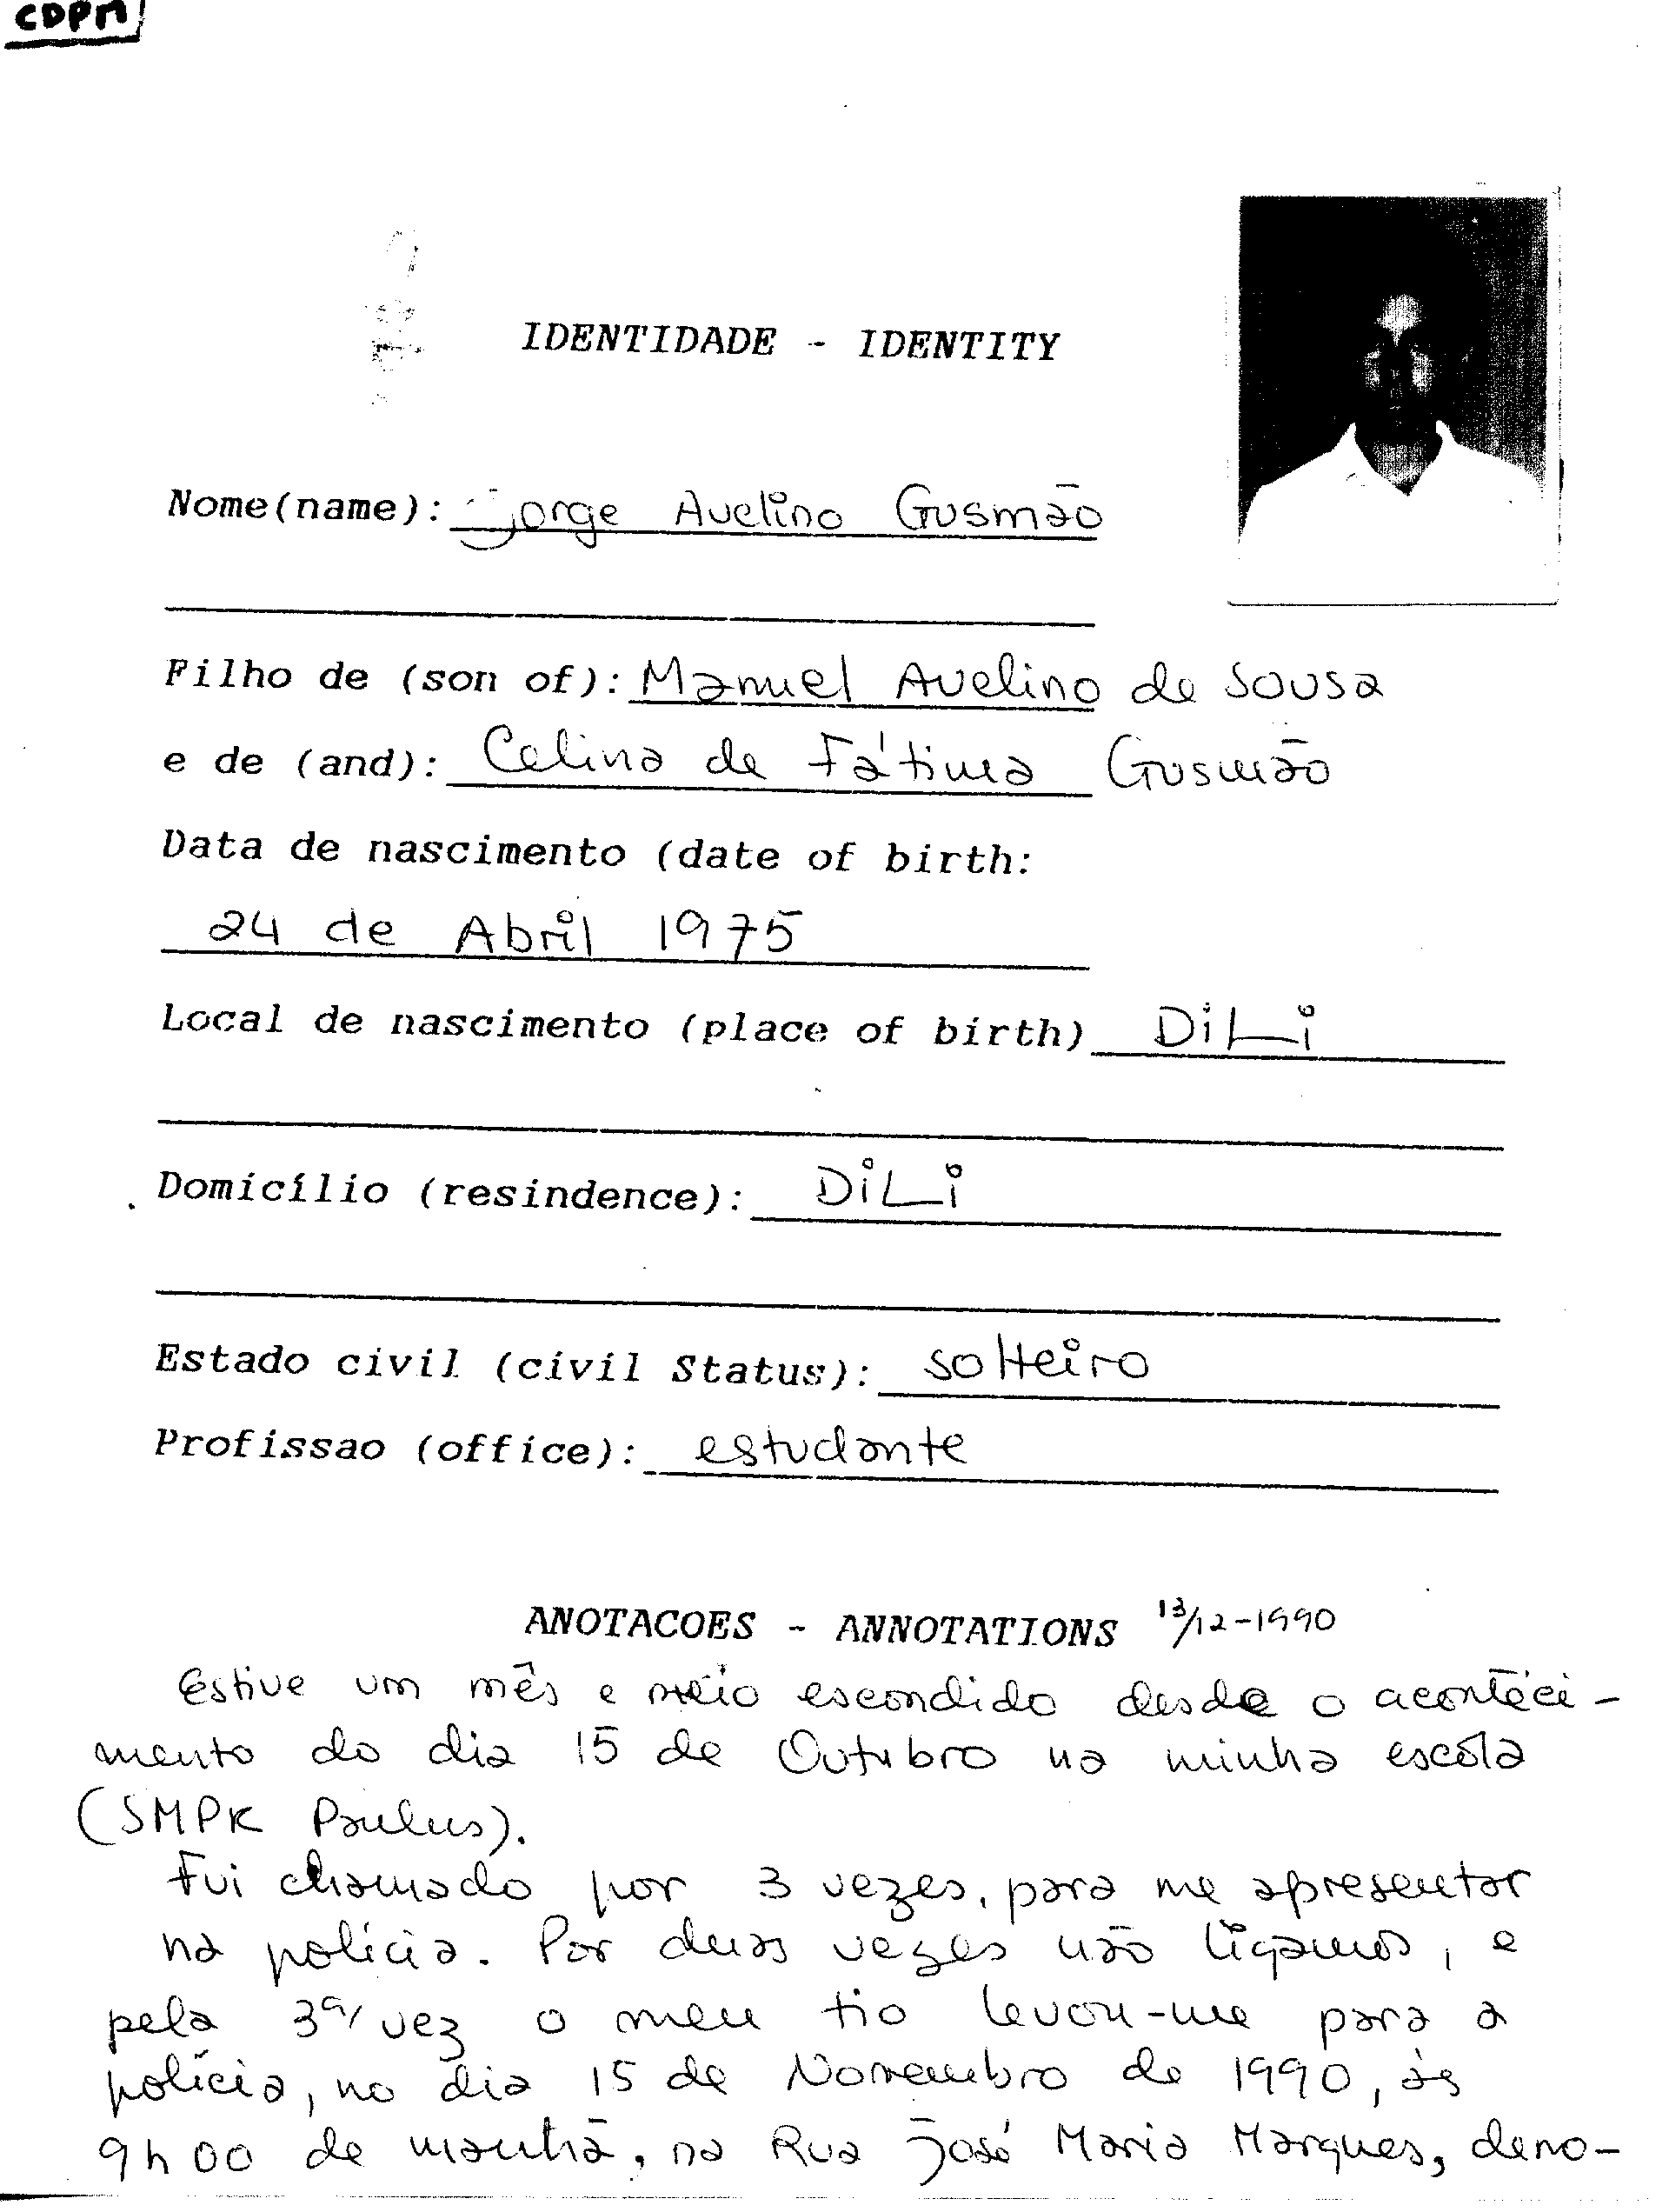 CDPM
IDENTIDADE - IDENTITY
Nome(name): Jorge Avelino Gusmão
Filho de (son of): Manuel Avelino de Sousa
e de (and): Celina de Fátima Gusmão
Data de nascimento (date of birth:
24 de Abril 1975
Local de nascimento (place of birth) DiLi
Domicílio (resindence): DiLi
Estado civil (civil Status): solteiro
Profissao (office): estudante
ANOTACOES - ANNOTATIONS 13/12-1990
Estive um mês e meio escondido desde o aconteci-
mento do dia 15 de Outubro na minha escola
(SMPK Paulus).
Fui chamado por 3 vezes, para me apresentar
na polícia. Por duas vezes não ligamos, e
pela 3ª vez o meu tio levou-me para a
polícia, no dia 15 de Novembro de 1990, às
9h00 de manhã, na Rua José Maria Marques, deno-